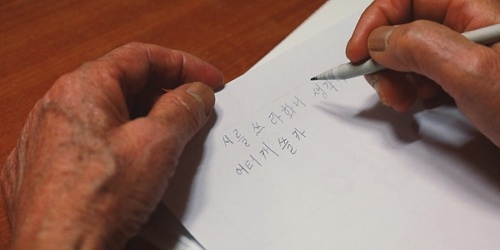 시를 쓰라하니 생각
어터게 쓸가